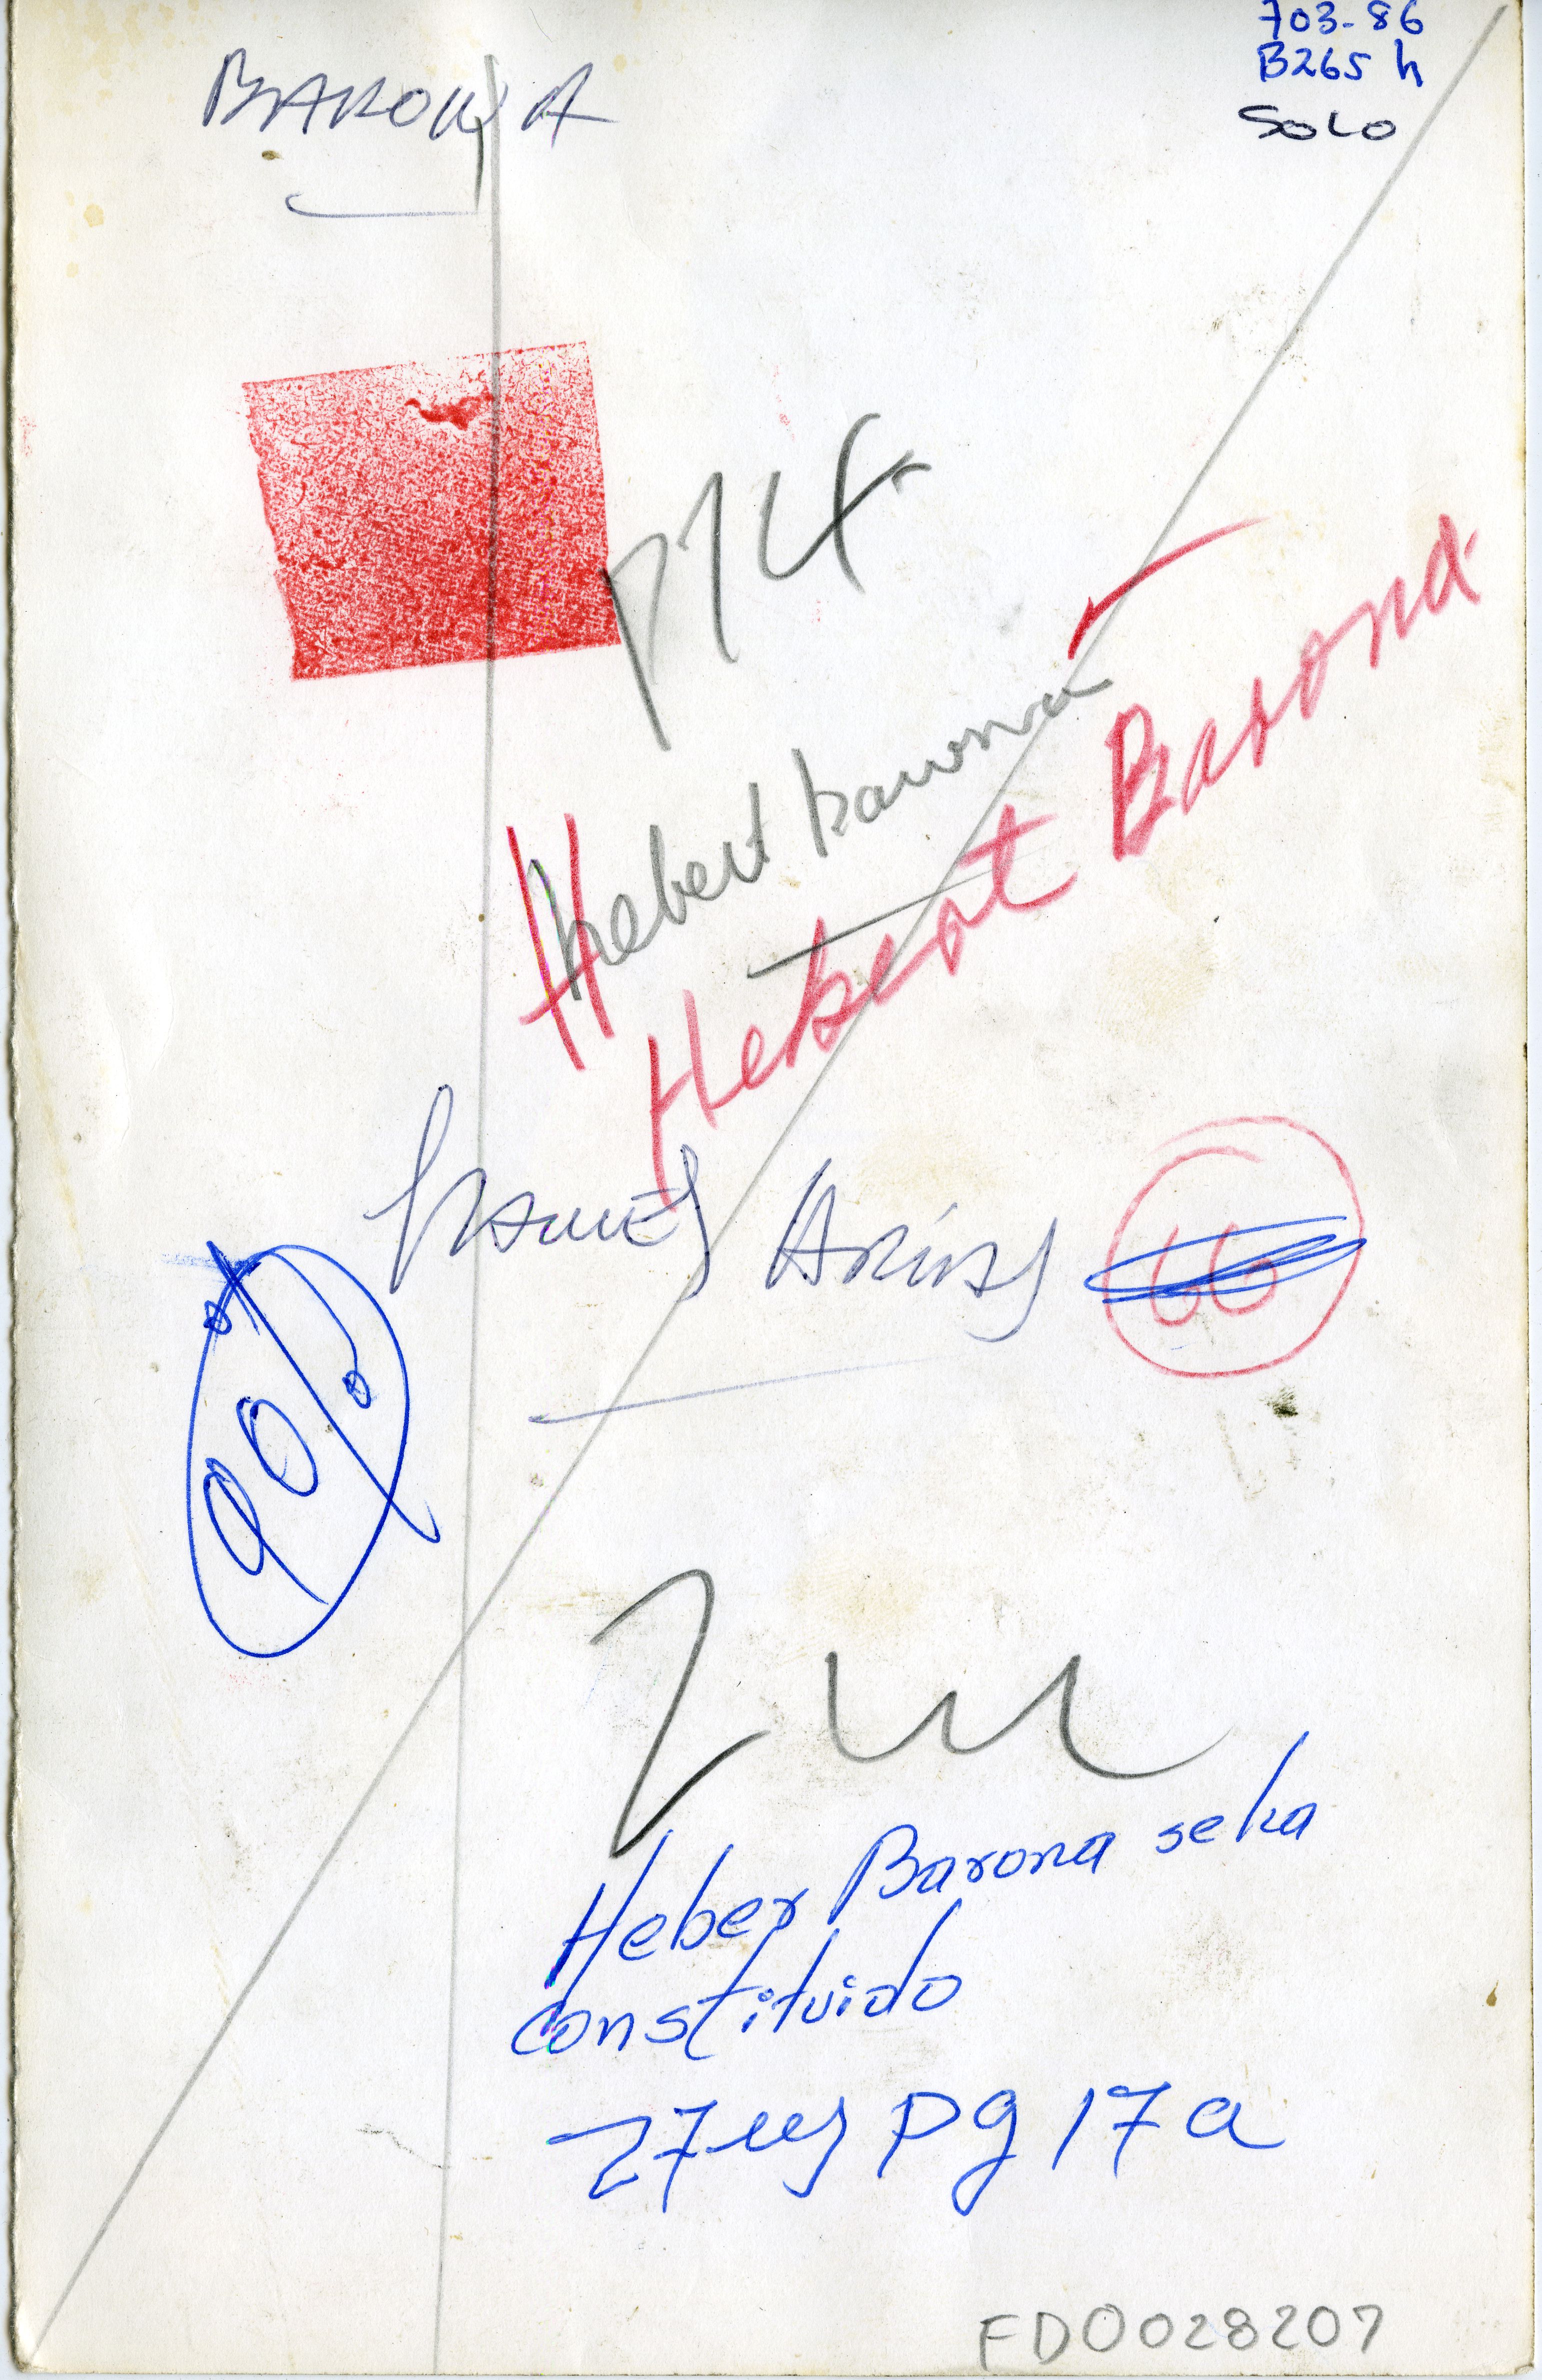 703-86
B265 h
SOLO
BARONA
P14
Hebert barona
Hebert Barona
Arias
66
90%
Heber Barona se ha
constituido
27 pg 17 a
FD0028207